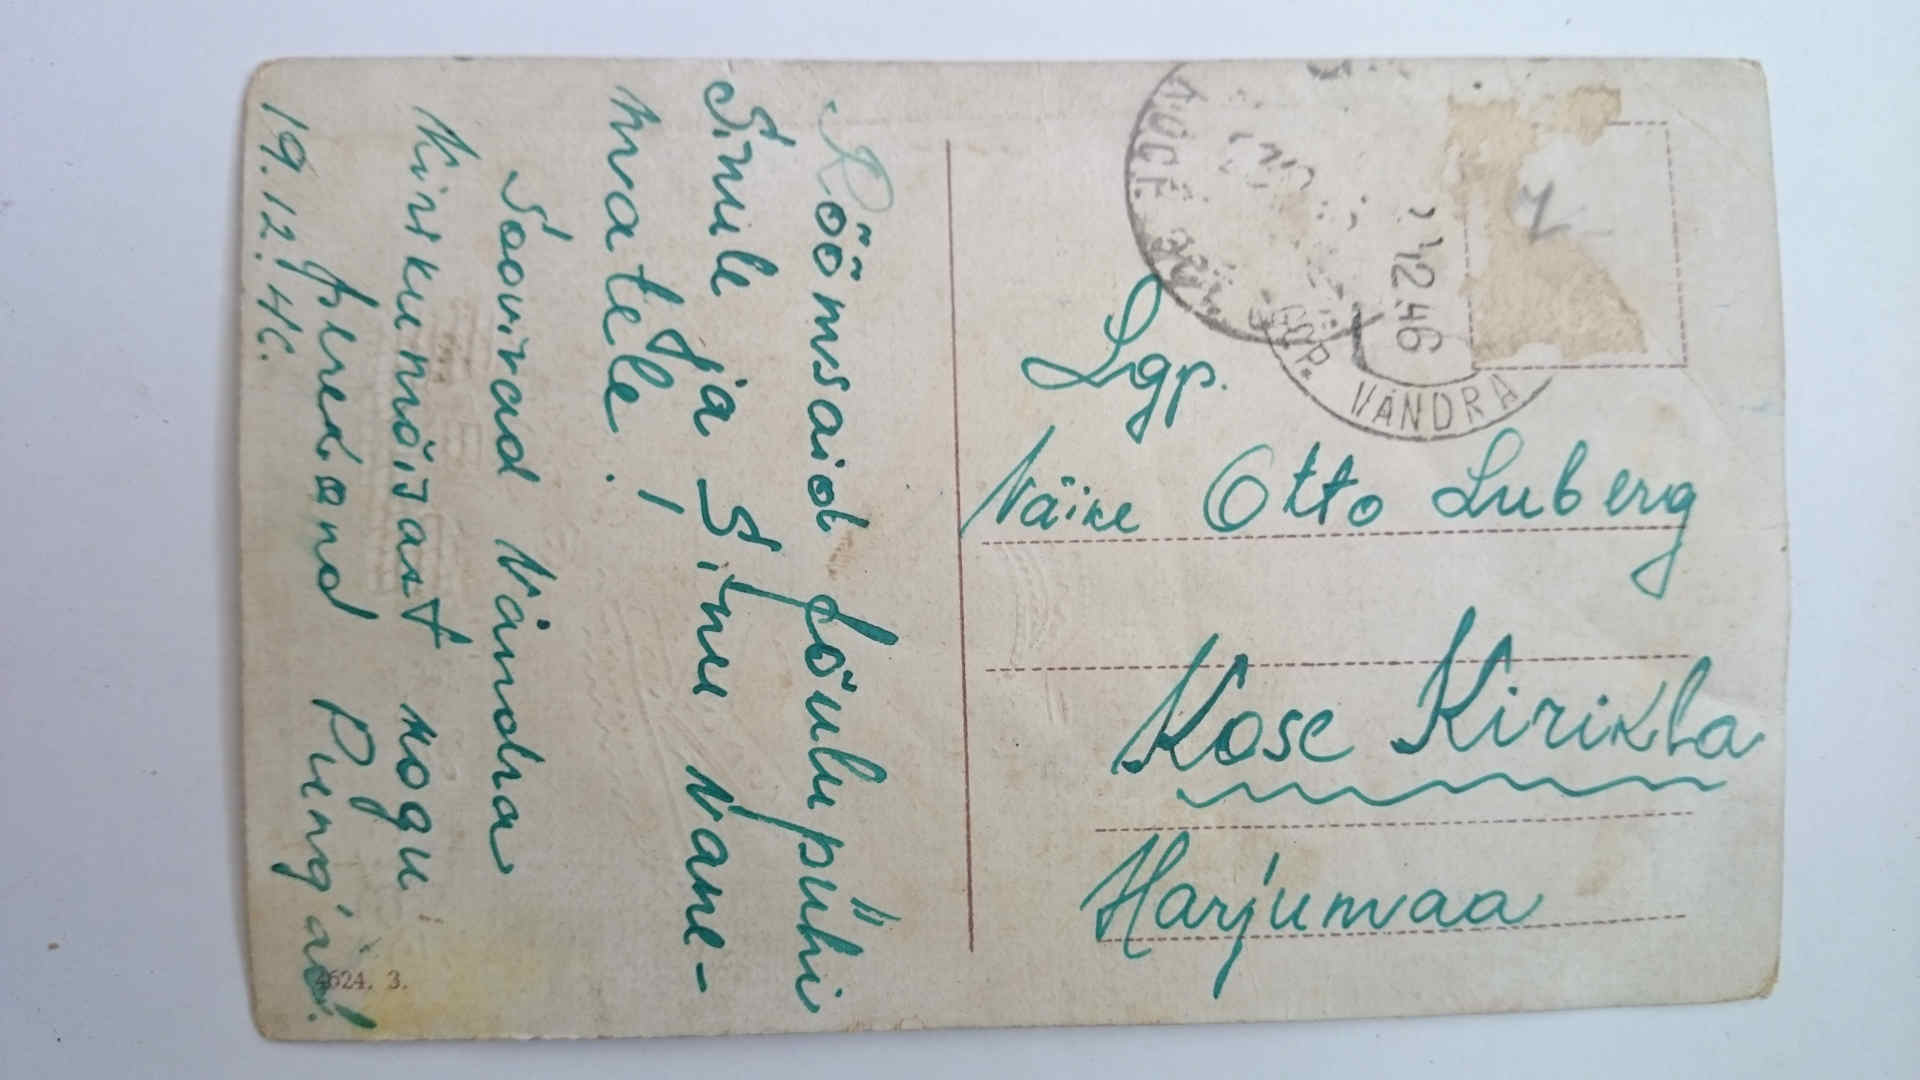 Rõõmsaid jõulupühi
Sinule ja Sinu vane-
matele!
Soovivad Vändra
Kirikumõisast kogu
perekond Püng'ad!
19.12.46.
4624. 3.
12.46
VÄNDRA
Lgp.
Väike Otto Luberg
Kose Kirikla
Harjumaa